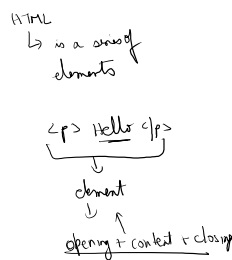 HTML
↳ is a series of
elements
<p> Hello </p>
element
opening + content + closing